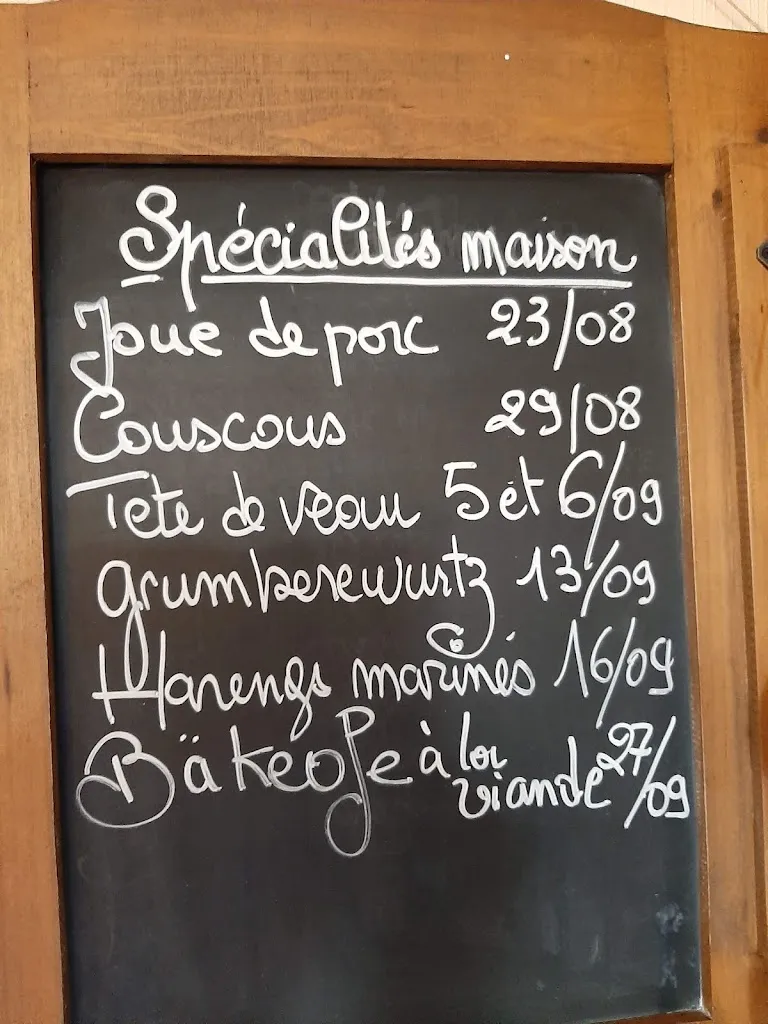 Spécialités maison
Joue de porc 23/08
Couscous 29/08
Tete de veau 5 et 6/09
Grumberewurtz 13/09
Harengs marinés 16/09
Bäkeofe à la viande 27/09